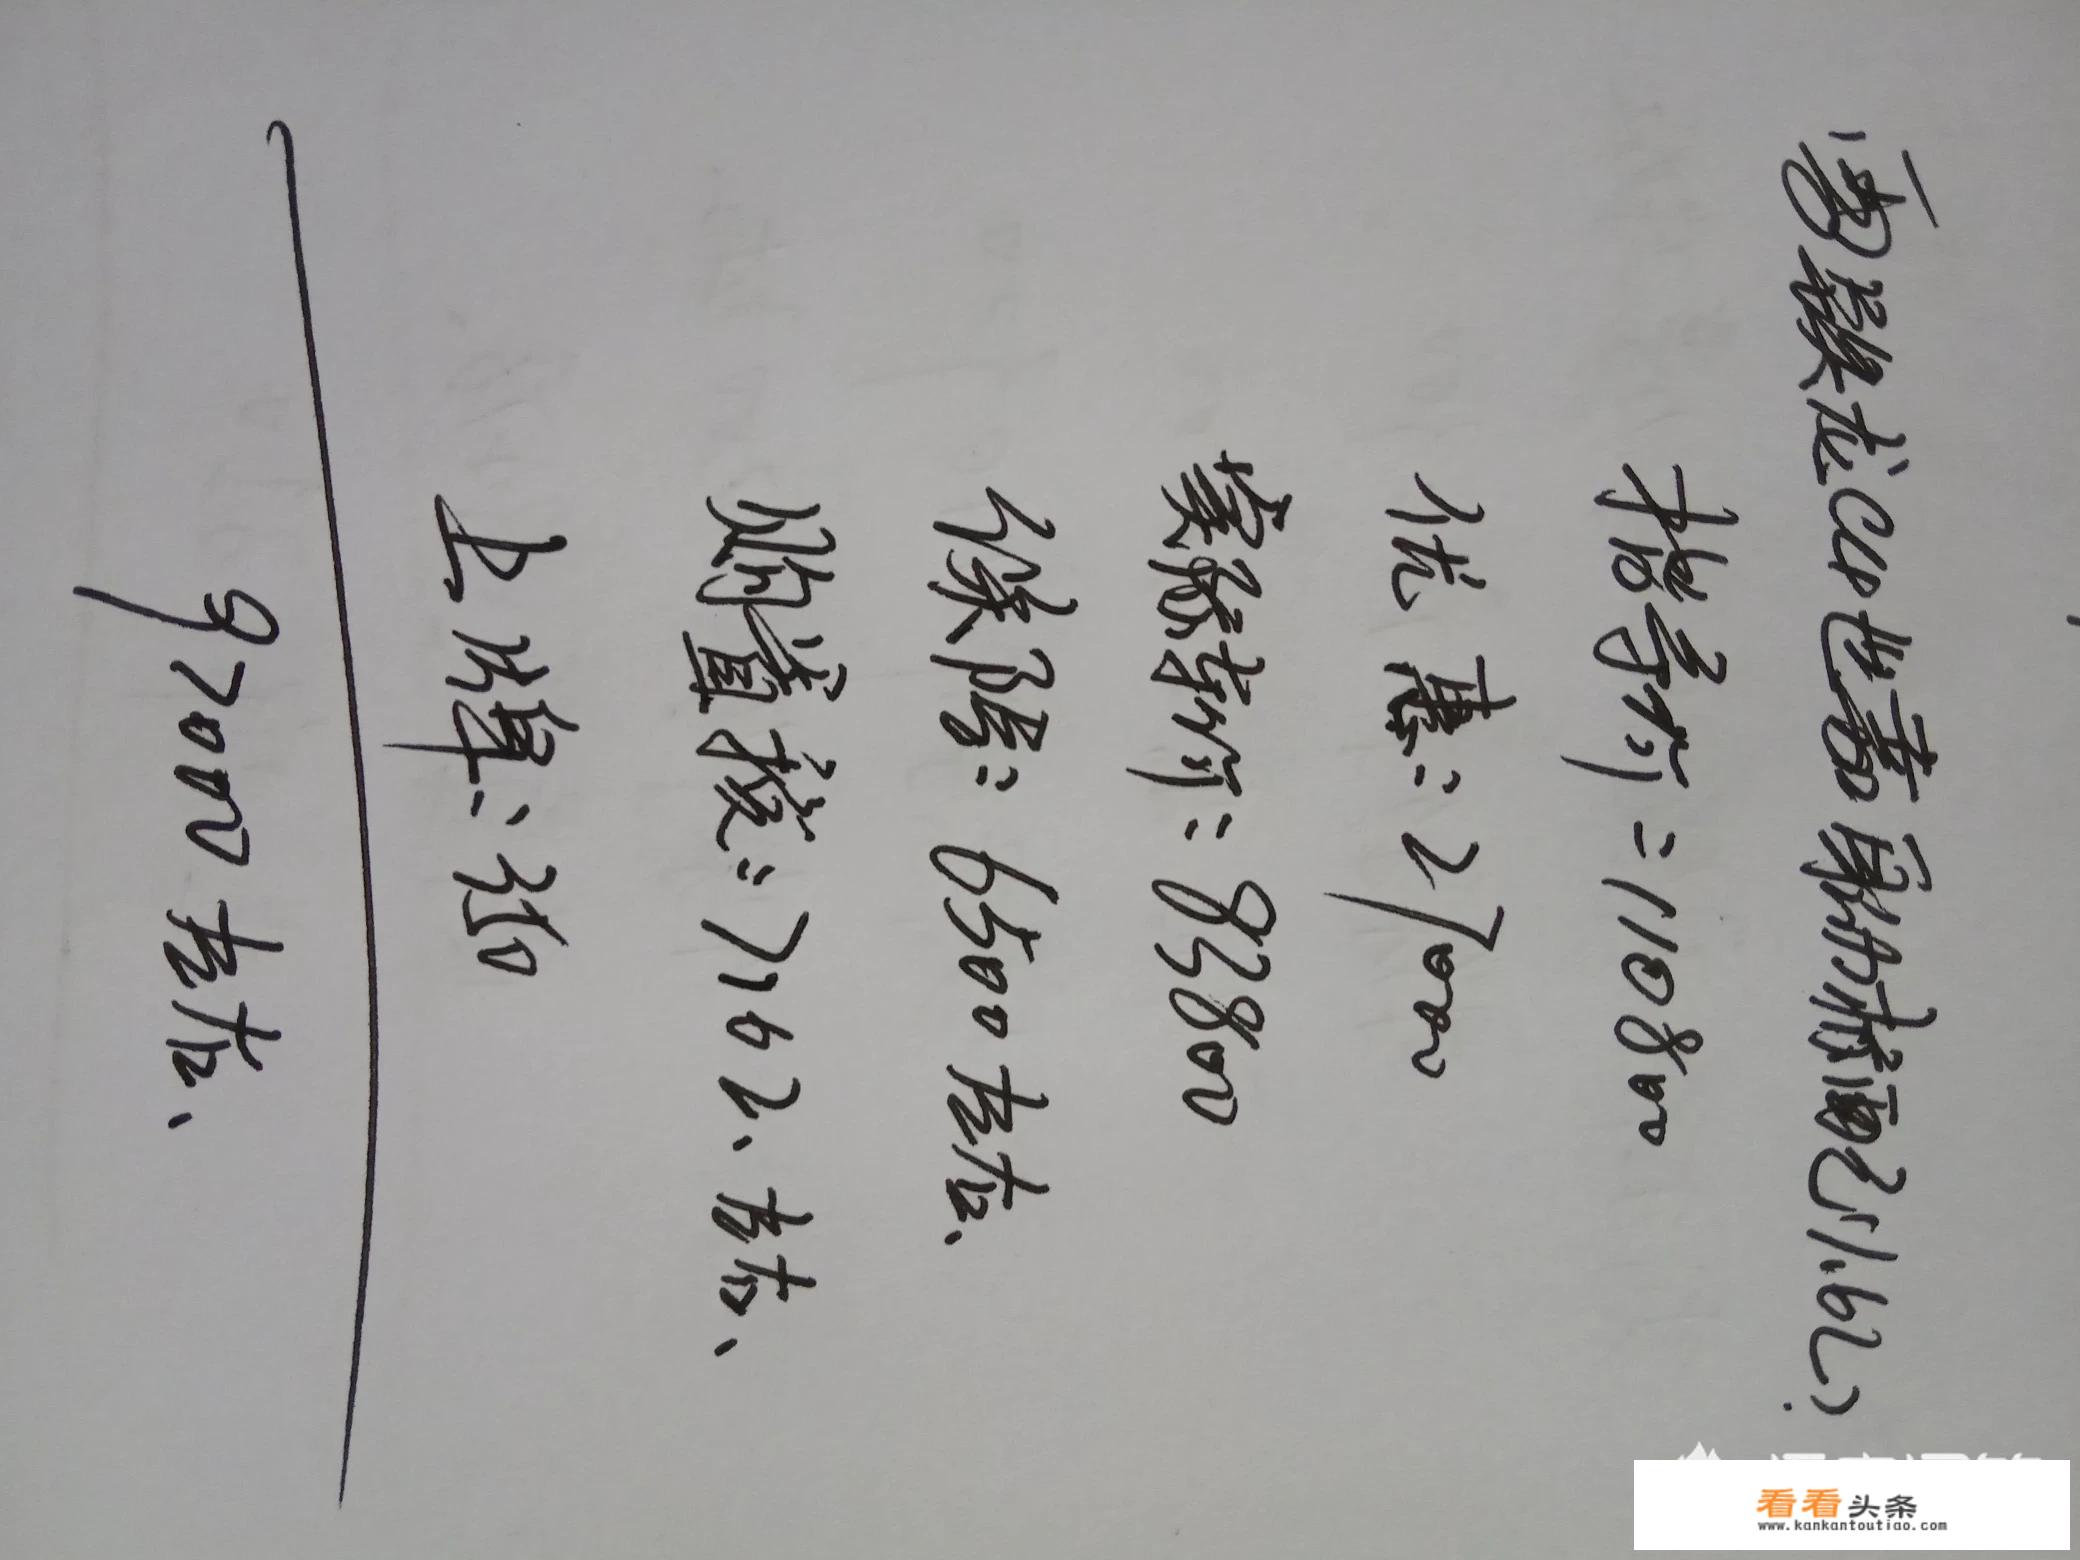 雪铁龙C4世嘉自动标配(1.6L)
指导价：110800
优惠：27000
实际车价：83800
保险：6500左右
购置税：7162.左右、
上牌：350
97000左右、
看看头条
www.kankantoutiao.com